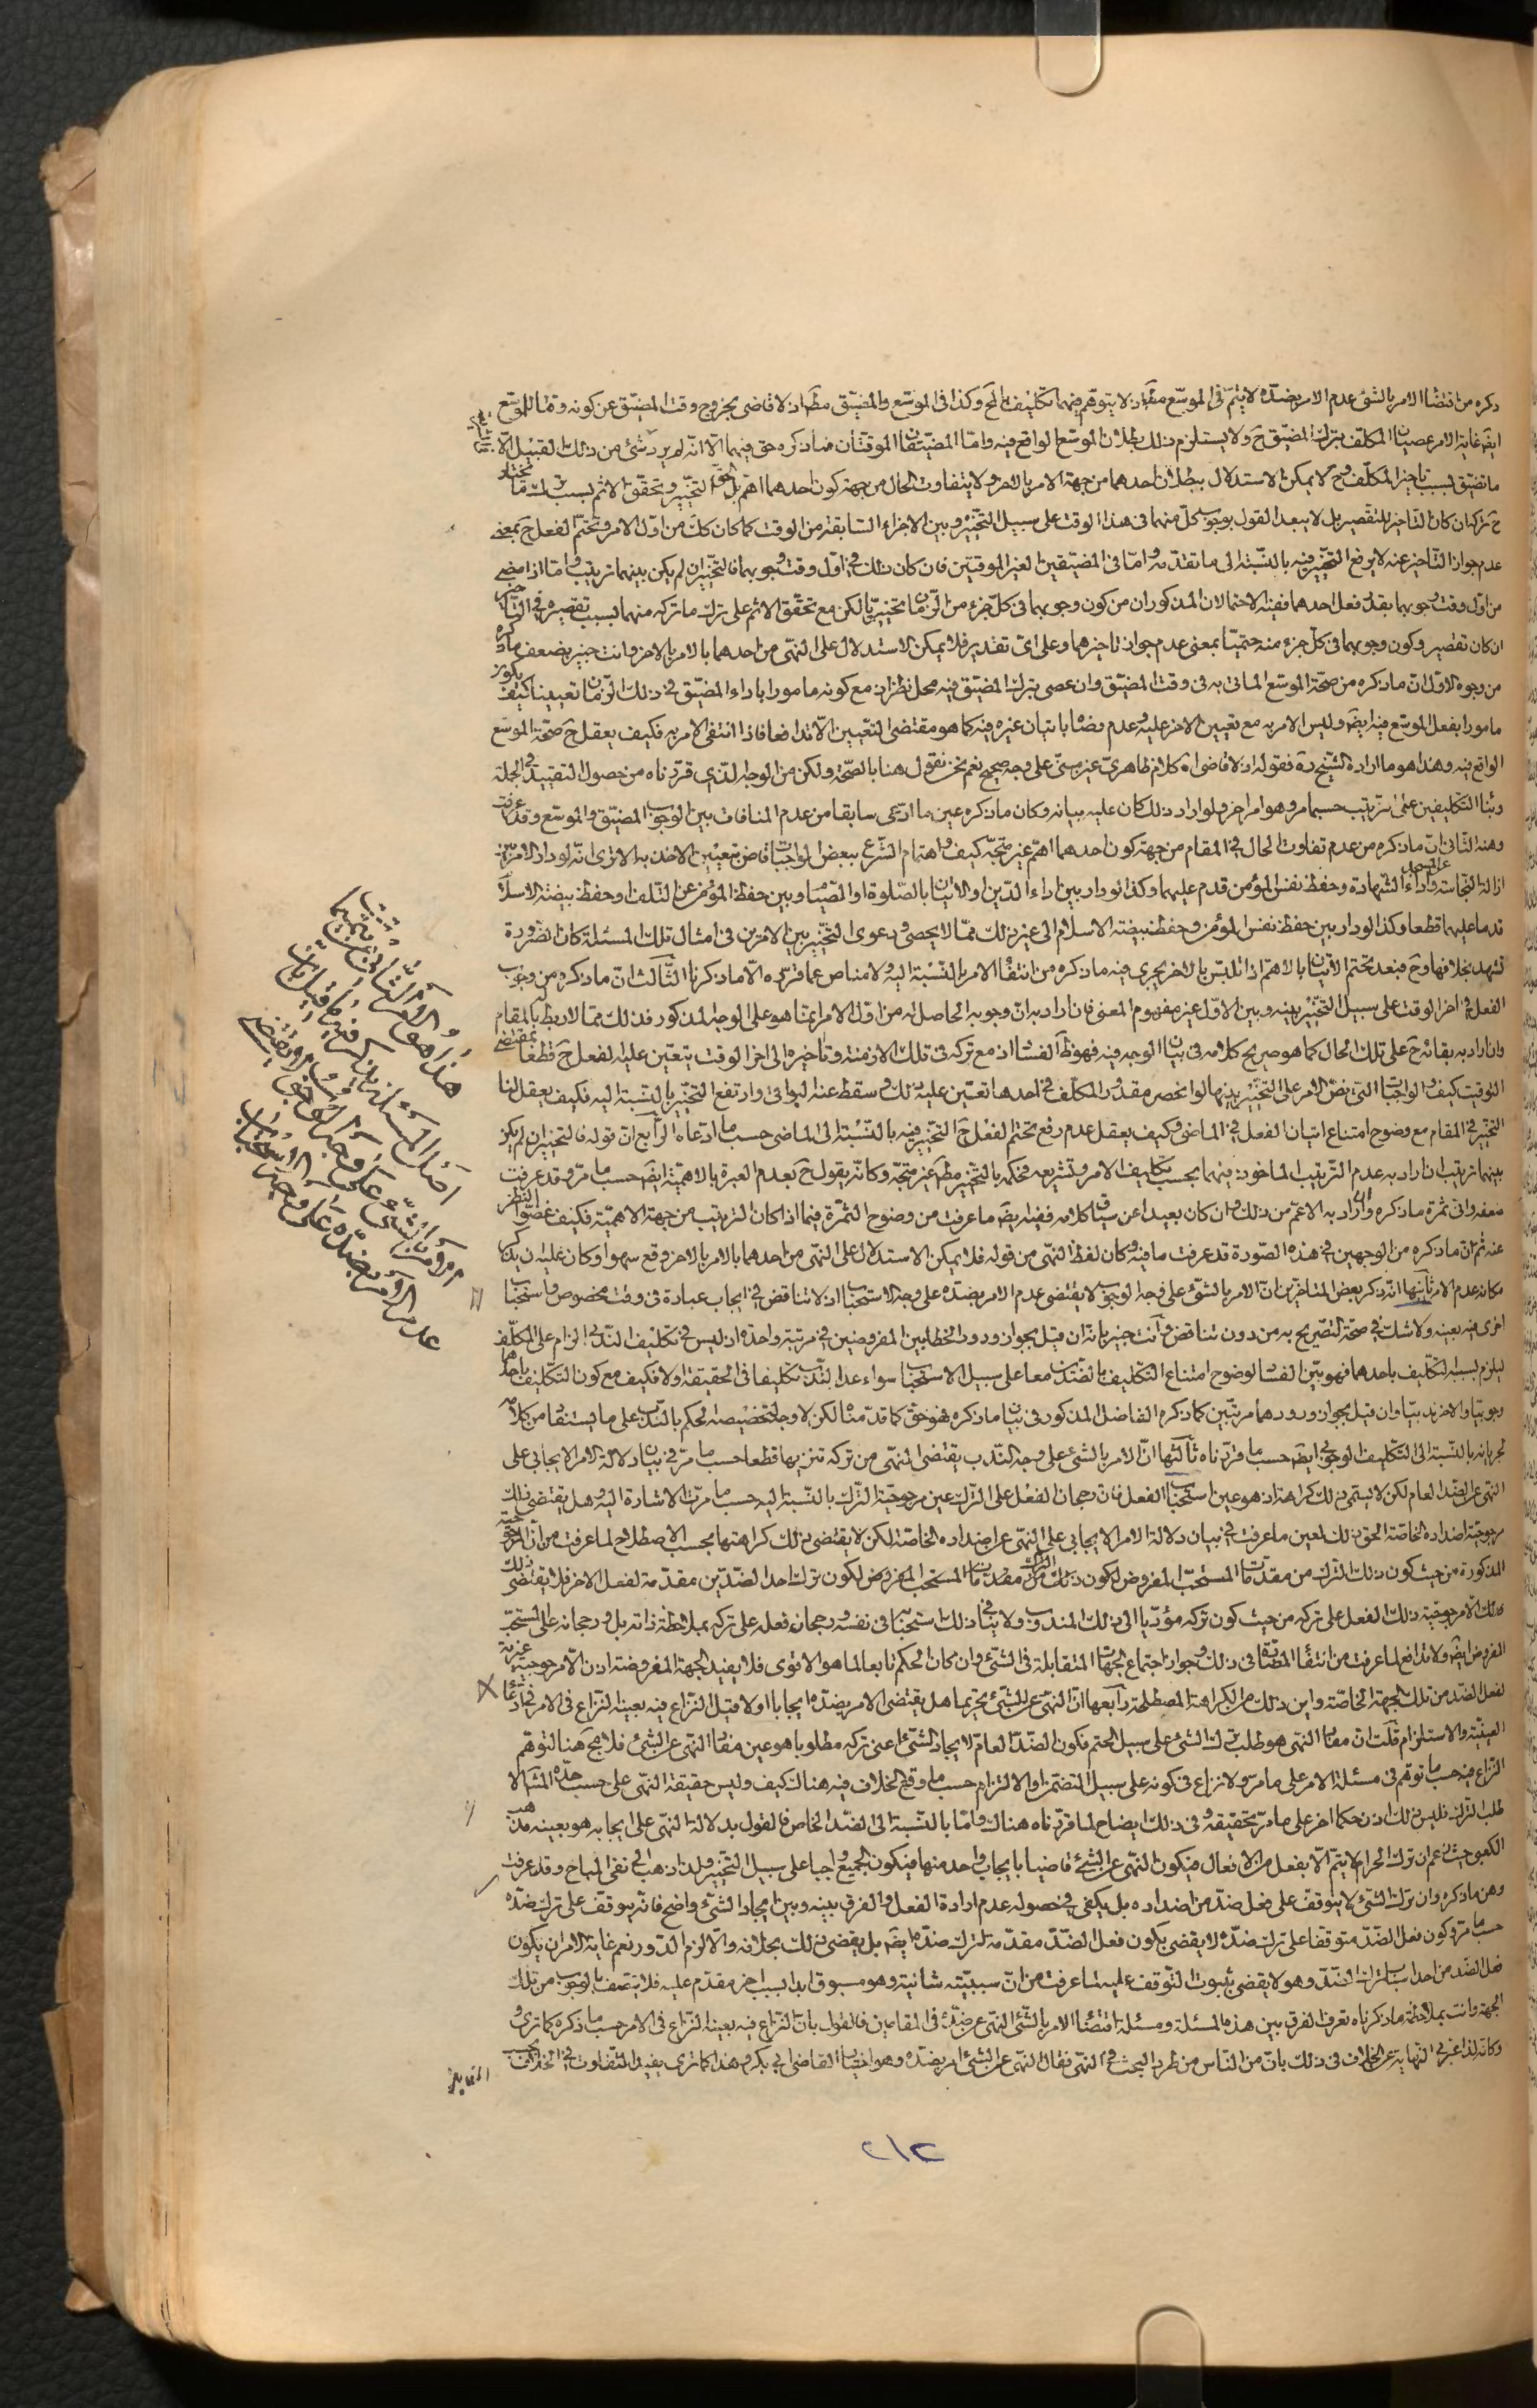 ذكره من اقتضاء الامر بالشئ عدم الامر بضدّه لا يتمّ فى الموسّع مقيّد اذ لا يتوهّم فيهما تكليف بالمح وكذا فى الموسّع والمضيّق مطلقا اذ لا قاضى بخروج وقت المضيّق عن كونه وقتا للموسّع
ايضا غاية الامر عصيان المكلّف بترك المضيّق ح ولا يستلزم ذلك بطلان الموسّع الواقع فيه وامّا المضيّقان الموقّتان فما ذكره حق فيهما الّا انّه لم يرد شئ من ذلك القبيل الّا
ما تضيّق بسبب تاخير المكلّف وح لا يمكن الاستدلال ببطلان احدهما من جهة الامر بالاخر ولا يتفاوت الحال من جهة كون احدهما اهمّ بل الحقّ التخيير وتحقّق الاثم بسبب
ح تركه ان كان التاخير للتقصير بل لا يبعد القول بوجوب كلّ منهما فى هذا الوقت على سبيل التخيير وبين الاجزاء السّابقة من الوقت كما كان كلّ من اوّل الامر وتحتّم الفعل ح بمعنى
عدم جواز التّاخير عنه لا يرفع التخيير فيه بالنّسبة الى ما تقدّمه وامّا فى المضيّقين الغير الموقّتين فان كان ذلك فى اوّل وقت وجوبهما فالتخيير ان لم يكن بينهما ترتيب وامّا اذا مضى
من اوّل وقت وجوبهما بقدر فعل احدهما ففيه الاحتمالان المذكوران من كون وجوبهما فى كلّ جزء من الزّمان تخييريّا لكن مع تحقّق الاثم على ترك ما تركه منهما بسبب تقصيره فى التّاخير
ان كان تقصير وكون وجوبهما فى كلّ جزء منه حتميّا بمعنى عدم جواز تاخيرهما وعلى اىّ تقدير فلا يمكن الاستدلال على النّهى من احدهما بالامر بالاخر وانت خبير بضعف ما ذكره
من وجوه الاوّل انّ ما ذكره من صحّة الموسّع الماتى به فى وقت المضيّق وان عصى بترك المضيّق فيه محل نظر اذ مع كونه مامورا باداء المضيّق فى ذلك الزّمان تعيينا كيف يكون
مامورا بفعل الموسّع فيه ايضا وليس الامر به مع تعيين الاخر عليه وعدم رضاه باتيان غيره فيه كما هو مقتضى التعيين الّا تدافعا فاذا انتفى الامر به فكيف يعقل ح صحّة الموسّع
الواقع فيه وهذا هو ما اراده الشّيخ ره فقوله اذ لا قاضى اه كلام ظاهرىّ غير مبنىّ على وجه صحيح نعم نحن نقول هنا بالصّحّة ولكن من الوجه الّذى قرّرناه من حصول التقييد فى الجملة
وبنا التّكليفين على ترتيب حسبما مر وهو امر اخر فلو اراد ذلك كان عليه بيانه وكان ما ذكره عين ما ادّعى سابقا من عدم المنافات بين الوجوب المضيّق والموسّع وقد عرفت
وهنه الثّانى انّ ما ذكره من عدم تفاوت الحال فى المقام من جهة كون احدهما اهمّ غير متّجه كيف واهتمام الشّرع ببعض الواجبات قاض بتعيين الاخذ به الا ترى انّه لو دار الامر بين
ازالة النّجاسة عن المسجد واداء الشّهادة وحفظ نفس المؤمن قدم عليهما وكذا لو دار بين اداء الدّين او الاتيان بالصّلوة او الصّيام وبين حفظ المؤمن عن التّلف وحفظ بيضة الاسلام
قدما عليهما قطعا وكذا لو دار بين حفظ نفس المؤمن وحفظ بيضة الاسلام الى غير ذلك ممّا لا يحصى ودعوى التخيير بين الامرين فى امثال تلك المسئلة كان الضّرورة
تشهد بخلافها وح فبعد تحتّم الاتيان بالاهمّ اذا تلبّس بالاخر يجرى فيه ما ذكره من انتفاء الامر بالنّسبة اليه ولا مناص عما قرّره الّا ما ذكرنا الثّالث انّ ما ذكره من وجوب
الفعل فى اخر الوقت على سبيل التخيير بينه وبين الاوّل غير مفهوم المعنى فان اراد به انّ وجوبه الحاصل له من اوّل الامر انما هو على الوجه المذكور فذلك ممّا لا ربط له بالمقام
وان اراد به بقائه ح على تلك الحال كما هو صريح كلامه فى بيان الوجه فيه فهو ظ الفساد اذ مع تركه فى تلك الازمنة وتاخيره الى اخر الوقت يتعيّن عليه الفعل ح قطعا بمقتضى
التوقيت كيف والواجبات الّتى نصّ الامر على التخيير بينها لو انحصر مقدور المكلّف فى احدها تعيّن عليه ذلك وسقط عنه البواقى وارتفع التخيير بالنّسبة اليه فكيف يعقل لنا
التخيير فى المقام مع وضوح امتناع اتيان الفعل فى الماضى وكيف يعقل عدم رفع تحتّم الفعل ح التخيير فيه بالنّسبة الى الماضى حسب ما ادّعاه الرّابع انّ قوله فالتخيير ان لم يكن
بينهما ترتيب ان اراد به عدم التّرتيب الماخوذ فيهما بحسب تكليف الامر وتشريعه فحكمه بالتخيير مطلقا غير متّجه وكانّه يقول ح بعدم العبرة بالاهميّة ايضا حسب ما مرّ وقد عرفت
ضعفه وانّ ثمرة ما ذكره وان اراد به الاعمّ من ذلك وان كان بعيدا عن سياق كلامه ففيه ايضا ما عرفت من وضوح الثّمرة فيما اذا كان الترتيب من جهة الاهميّة فكيف غضّوا النظر
عنه ثم انّ ما ذكره من الوجهين فى هذه الصّورة قد عرفت ما فيه وكان لفظ النّهى من قوله فلا يمكن الاستدلال على النّهى من احدهما بالامر بالاخر وقع سهوا وكان عليه ان يذكر
مكانه عدم الامر ثانيها انّه ذكر بعض المتاخّرين انّ الامر بالشّئ على وجه الوجوب لا يقتضى عدم الامر بضدّه على وجه الاستحباب اذ لا تناقض فى ايجاب عبادة فى وقت مخصوص واستحباب
اخرى فيه بعينه ولا شكّ فى صحّة التّصريح به من دون تناقض وانت خبير بانّه ان قيل بجواز ورود الخطابين المفروضين فى مرتبة واحدة اذ ليس فى تكليف النّدبى الزام على المكلّف
ليلزم بسببه التّكليف باحدهما فهو بيّن الفساد لوضوح امتناع التّكليف بالضّدّين معا على سبيل الاستحباب سواء عدا النّدب تكليفا فى الحقيقة او لا فكيف مع كون التّكليف باحدهما
وجوبيّا والاخر ندبيّا وان قيل بجواز ورودهما مرتّبين كما ذكره الفاضل المذكور فى بيان ما ذكره فهو حق كما قدّمناه لكن لا وجه لتخصيصه الحكم بالنّدب على ما يستفاد من كلامه
لجريانه بالنّسبة الى التّكليف الوجوبى ايضا حسب ما قرّرناه ثالثها انّ الامر بالشئ على وجه النّدب يقتضى النّهى من تركه تنزيها قطعا حسب ما مرّ فى بيان دلالة الامر الايجابى على
النّهى عن الضّد العام لكن لا يسمّى ذلك كراهة اذ هو عين استحباب الفعل فانّ رجحان الفعل على التّرك عين مرجوحيّة التّرك بالنّسبة اليه حسب ما مرّت الاشارة اليه وهل يقتضى ذلك
مرجوحيّة اضداده الخاصّة الحق ذلك لعين ما عرفت فى بيان دلالة الامر الايجابى على النّهى عن اضداده الخاصّة لكن لا يقتضى ذلك كراهتها بحسب الاصطلاح لما عرفت من انّ المرجوحيّة
المذكورة من حيث كون ذلك التّرك من مقدّمات المستحبّ المفروض لكون ترك احد الضّدّين مقدّمة لفعل الاخر فلا يقتضى ذلك
الّا مرجوحيّة ذلك الفعل على تركه من حيث كون تركه مؤدّيا الى ذلك المندوب ولا ينافى ذلك استحبابه فى نفسه ورجحان فعله على تركه بملاحظة ذاته بل ورجحانه على المستحبّ
المفروض ايضا ولا تدافع لما عرفت من انتفاء المضادّة فى ذلك وجواز اجتماع الجهات المتقابلة فى الشّئ وان كان الحكم تابعا لما هو الاقوى فلا يفيد الجهة المفروضة اذن الّا مرجوحيّة غيريّة
لفعل الضّد من تلك الجهة الخاصّة واين ذلك من الكراهة المصطلحة رابعها انّ النّهى عن الشّئ تحريما هل يقتضى الامر بضدّه ايجابا او لا قيل النّزاع فيه بعينه النّزاع فى الامر فى ادّعاء
العينيّة والاستلزام قلت انّ مفاد النّهى هو طلب ترك الشّئ على سبيل الحتم فكون الضّدّ العامّ لايجاد الشّئ اعنى تركه مطلوبا هو عين مفاد النّهى عن الشّئ فلا مجال هنا لتوهّم
النّزاع فيه حسب ما توهّم فى مسئلة الامر على ما مرّ ولا نزاع فى كونه على سبيل التضمّن او الالتزام حسب ما وقع الخلاف فيه هناك كيف وليس حقيقة النّهى على حسب حدّه المشهور الّا
طلب التّرك فليس ذلك اذن حكما اخر على ما مرّ تحقيقه وفى ذلك ايضاح لما قرّرناه هناك وامّا بالنّسبة الى الضّد الخاص فالقول بدلالة النّهى على ايجابه هو بعينه مذهب
الكعبى حيث زعم ان ترك الحرام لا يتمّ الّا بفعل من الافعال فيكون النّهى عن الشّئ قاضيا بايجاب واحد منها فيكون الجميع واجبا على سبيل التّخيير ولذا ذهب الى نفى المباح وقد عرفت
وهن ما ذكره وان ترك الشّئ لا يتوقّف على فعل ضدّ من اضداده بل يكفى فى حصوله عدم ارادة الفعل والفرق بينه وبين ايجاد الشّئ واضح فانّه يتوقّف على ترك ضدّه
حسب ما مرّ وكون فعل الضّدّ متوقّفا على ترك ضدّه لا يقضى بكون فعل الضّدّ مقدّمة لترك ضدّه ايضا بل يقضى ذلك بخلافه والّا لزم الدّور نعم غاية الامر ان يكون
فعل الضّد من احد اسباب ترك الضّدّ وهو لا يقضى بثبوت التّوقف عليه لما عرفت من انّ سببيّته شانيّة وهو مسبوق ابدا بسبب اخر مقدّم عليه فلا يتّصف بالوجوب من تلك
الجهة وانت بملاحظة ما ذكرناه تعرف الفرق بين هذه المسئلة ومسئلة اقتضاء الامر بالشّئ النّهى عن ضدّه فى المقامين فالقول بانّ النّزاع فيه بعينه النّزاع فى الامر حسب ما ذكره كما ترى
وكانّه لذا عبّر فى النّهاية عن الخلاف فى ذلك بانّ من النّاس من طرد البحث فى النّهى فقال النّهى عن الشّئ امر بضدّه وهو اختيار القاضى ابى بكر وهذا كما ترى يفيد التّفاوت فى الخلاف بحسب
المقامين
هذا هو الامر الثّانى
اصل المسئلة
الامر بالشئ على وجه الوجوب لا يقتضى
عدم الامر بضدّه على وجه الاستحباب
٢١٢